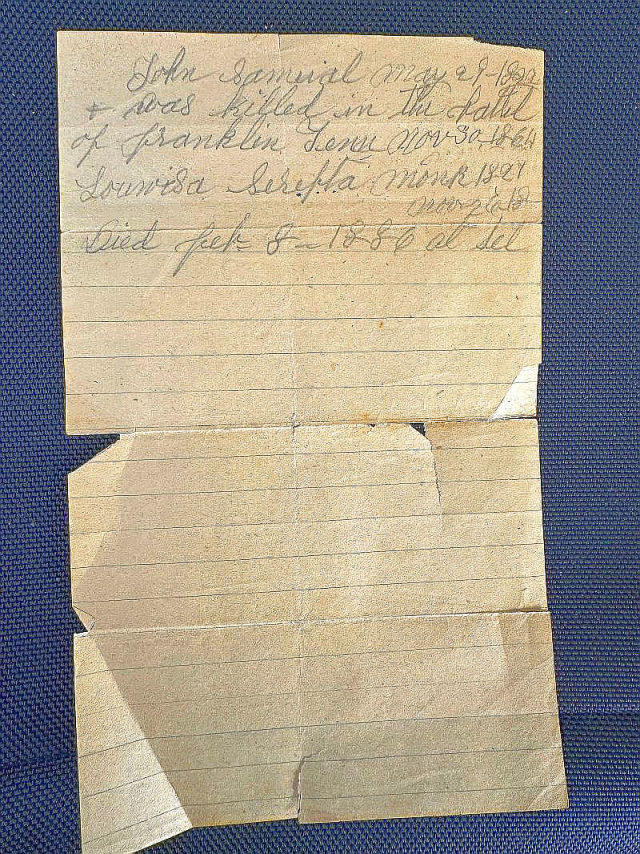 John Samuial May 29-1822
+ was killed in the battel
of franklin Tenn Nov 30 1864
Louwisa Serepta Monk 1827
Nov 26
Died feb 8-1886 at Sel